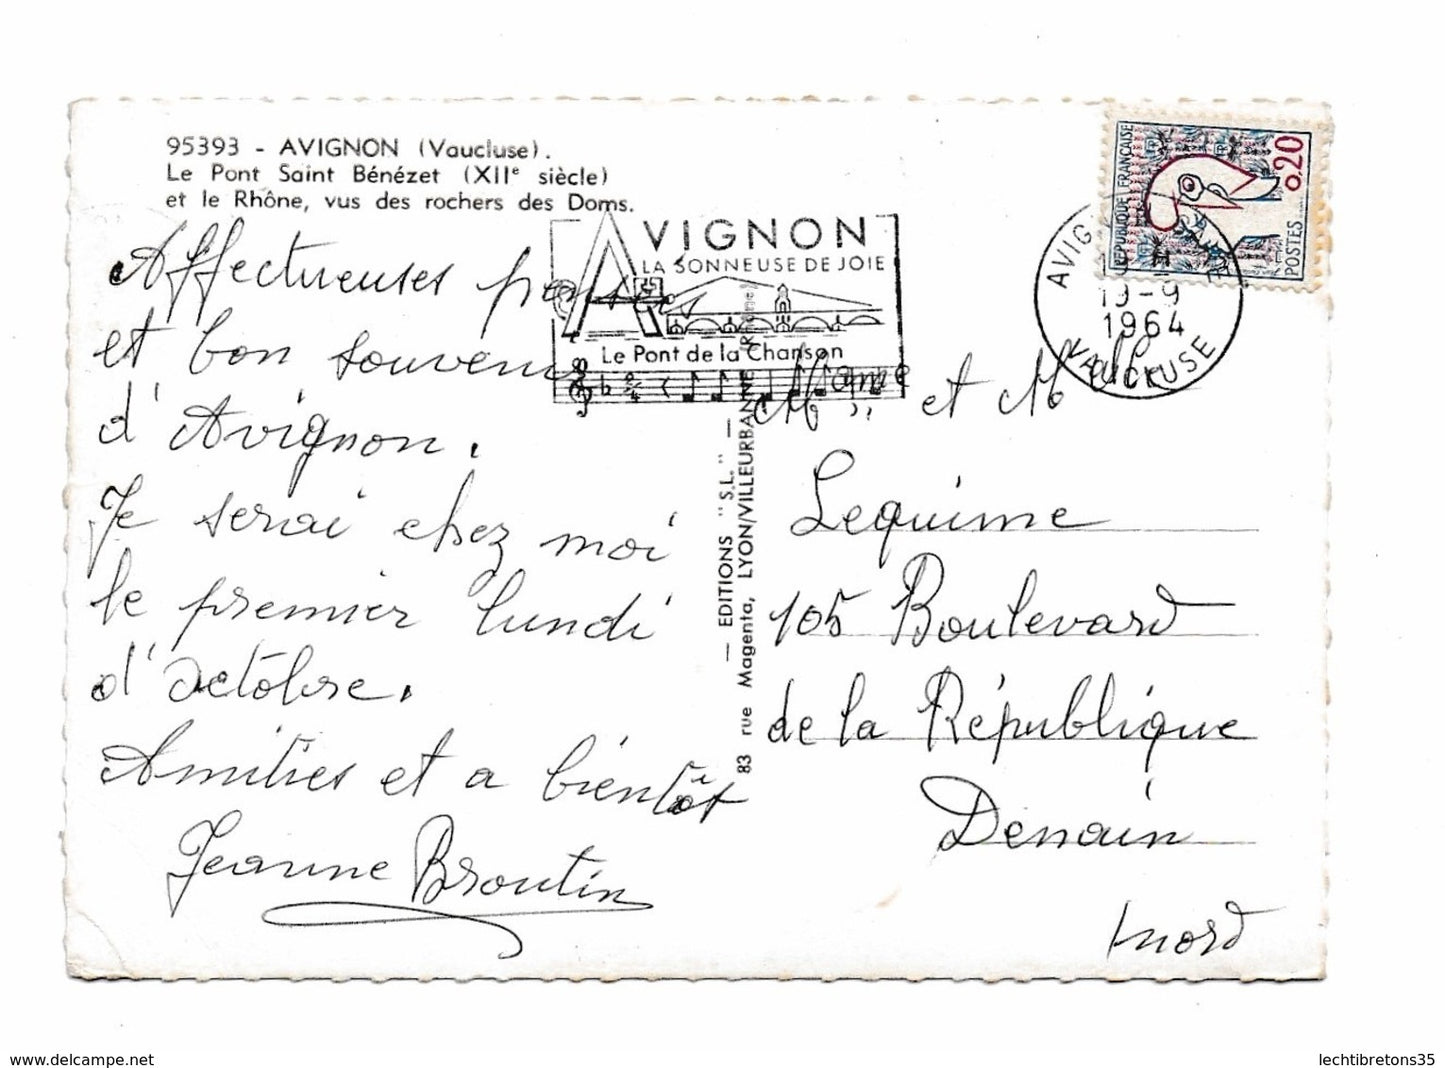 95393 - AVIGNON (Vaucluse).
Le Pont Saint Bénézet (XIIe siècle)
et le Rhône, vus des rochers des Doms.
Affectueuses
et bon souvenir
d'Avignon.
Je serai chez moi
le premier lundi
d'octobre.
Amitiés et a bientôt
Jeanne Broutin
AVIGNON
LA SONNEUSE DE JOIE
Le Pont de la Chanson
— EDITIONS "S.L." —
83 rue Magenta, LYON/VILLEURBANNE (Rhône)
REPUBLIQUE FRANÇAISE
0,20
POSTES
19-9
1964
VAUCLUSE
Mme et Melle
Lequime
105 Boulevard
de la République
Denain
nord
www.delcampe.net
lechtibretons35